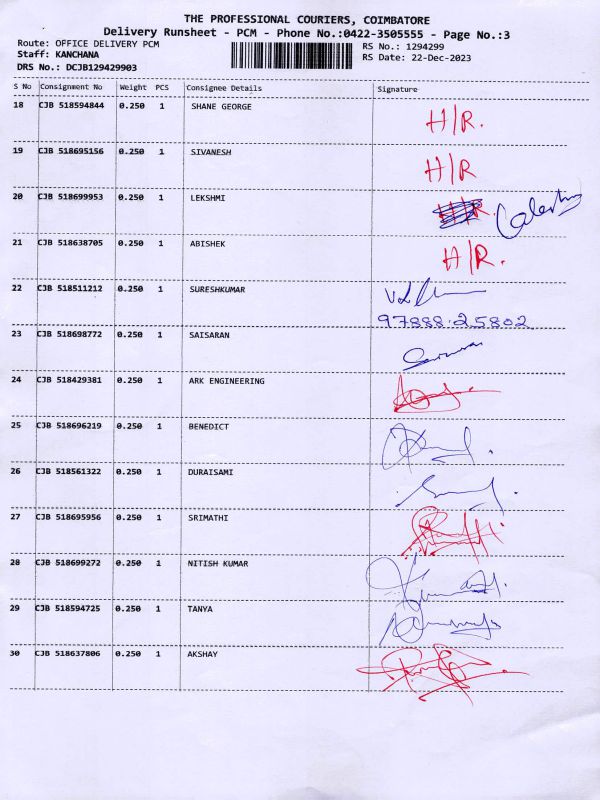 THE PROFESSIONAL COURIERS, COIMBATORE
Delivery Runsheet - PCM - Phone No.:0422-3505555 - Page No.:3
Route: OFFICE DELIVERY PCM RS No.: 1294299
Staff: KANCHANA RS Date: 22-Dec-2023
DRS No.: DCJB129429903
S No Consignment No Weight PCS Consignee Details Signature
18 CJB 518594844 0.250 1 SHANE GEORGE H/R.
19 CJB 518695156 0.250 1 SIVANESH H/R
20 CJB 518699953 0.250 1 LEKSHMI
21 CJB 518638705 0.250 1 ABISHEK H/R.
22 CJB 518511212 0.250 1 SURESHKUMAR
97888.25802
23 CJB 518698772 0.250 1 SAISARAN
24 CJB 518429381 0.250 1 ARK ENGINEERING
25 CJB 518696219 0.250 1 BENEDICT
26 CJB 518561322 0.250 1 DURAISAMI
27 CJB 518695956 0.250 1 SRIMATHI
28 CJB 518699272 0.250 1 NITISH KUMAR
29 CJB 518594725 0.250 1 TANYA
30 CJB 518637806 0.250 1 AKSHAY